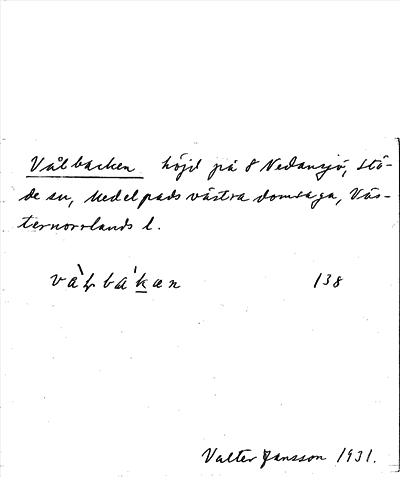 Vålbacken höjd på 8 Nedansjö, Stö-
de sn, Medelpads västra domsaga, Väs-
ternorrlands l.
138
Valter Jansson 1931.